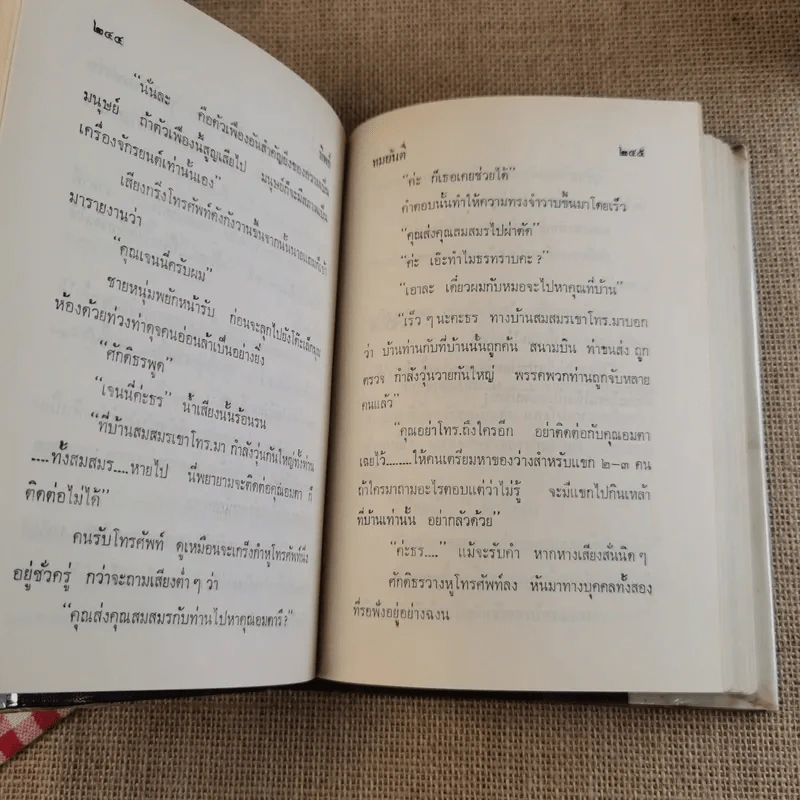 ๒๔๔
ทิพย์
“นั่นละ คือตัวเฟืองอันสำคัญยิ่งของความเป็น
มนุษย์ ถ้าตัวเฟืองนี้สูญเสียไป มนุษย์ก็จะมีสภาพเป็น
เครื่องจักรยนต์เท่านั้นเอง”
เสียงกริ่งโทรศัพท์ดังกังวานขึ้นจากนั้น
มารายงานว่า
“คุณเจนนี่ครับผม”
ชายหนุ่มพยักหน้ารับ ก่อนจะลุกไปยังโต๊ะเล็กมุม
ห้องด้วยท่วงท่าดุจคนอ่อนล้าเป็นอย่างยิ่ง
“ศักดิธรพูด”
“เจนนี่ค่ะธร” น้ำเสียงนั้นร้อนรน
“ที่บ้านสมสมรเขาโทร.มา กำลังวุ่นกันใหญ่ทั้งท่าน
....ทั้งสมสมร....หายไป นี่พยายามจะติดต่อคุณอมตา ก็
ติดต่อไม่ได้”
คนรับโทรศัพท์ ดูเหมือนจะเกร็งกำหูโทรศัพท์นิ่ง
อยู่ชั่วครู่ กว่าจะถามเสียงต่ำๆ ว่า
“คุณส่งคุณสมสมรกับท่านไปหาคุณอมตารึ?”
ทมยันตี
๒๔๕
“ค่ะ ก็เธอเคยช่วยได้”
คำตอบนั้นทำให้ความทรงจำวาบขึ้นมาโดยเร็ว
“คุณส่งคุณสมสมรไปผ่าตัด”
“ค่ะ เอ๊ะทำไมธรทราบคะ?”
“เอาละ เดี๋ยวผมกับหมอจะไปหาคุณที่บ้าน”
“เร็วๆ นะคะธร ทางบ้านสมสมรเขาโทร.มาบอก
ว่า บ้านท่านกับที่บ้านนั้นถูกค้น สนามบิน ท่าขนส่ง ถูก
ตรวจ กำลังวุ่นวายกันใหญ่ พรรคพวกท่านถูกจับหลาย
คนแล้ว”
“คุณอย่าโทร.ถึงใครอีก อย่าติดต่อกับคุณอมตา
เฉยไว้........ให้คนเตรียมหาของว่างสำหรับแขก ๒-๓ คน
ถ้าใครมาถามอะไรตอบแต่ว่าไม่รู้ จะมีแขกไปกินเหล้า
ที่บ้านเท่านั้น อย่ากลัวด้วย”
“ค่ะธร....” แม้จะรับคำ หากหางเสียงสั่นนิดๆ
ศักดิธรวางหูโทรศัพท์ลง หันมาทางบุคคลทั้งสอง
ที่รอฟังอยู่อย่างฉงน